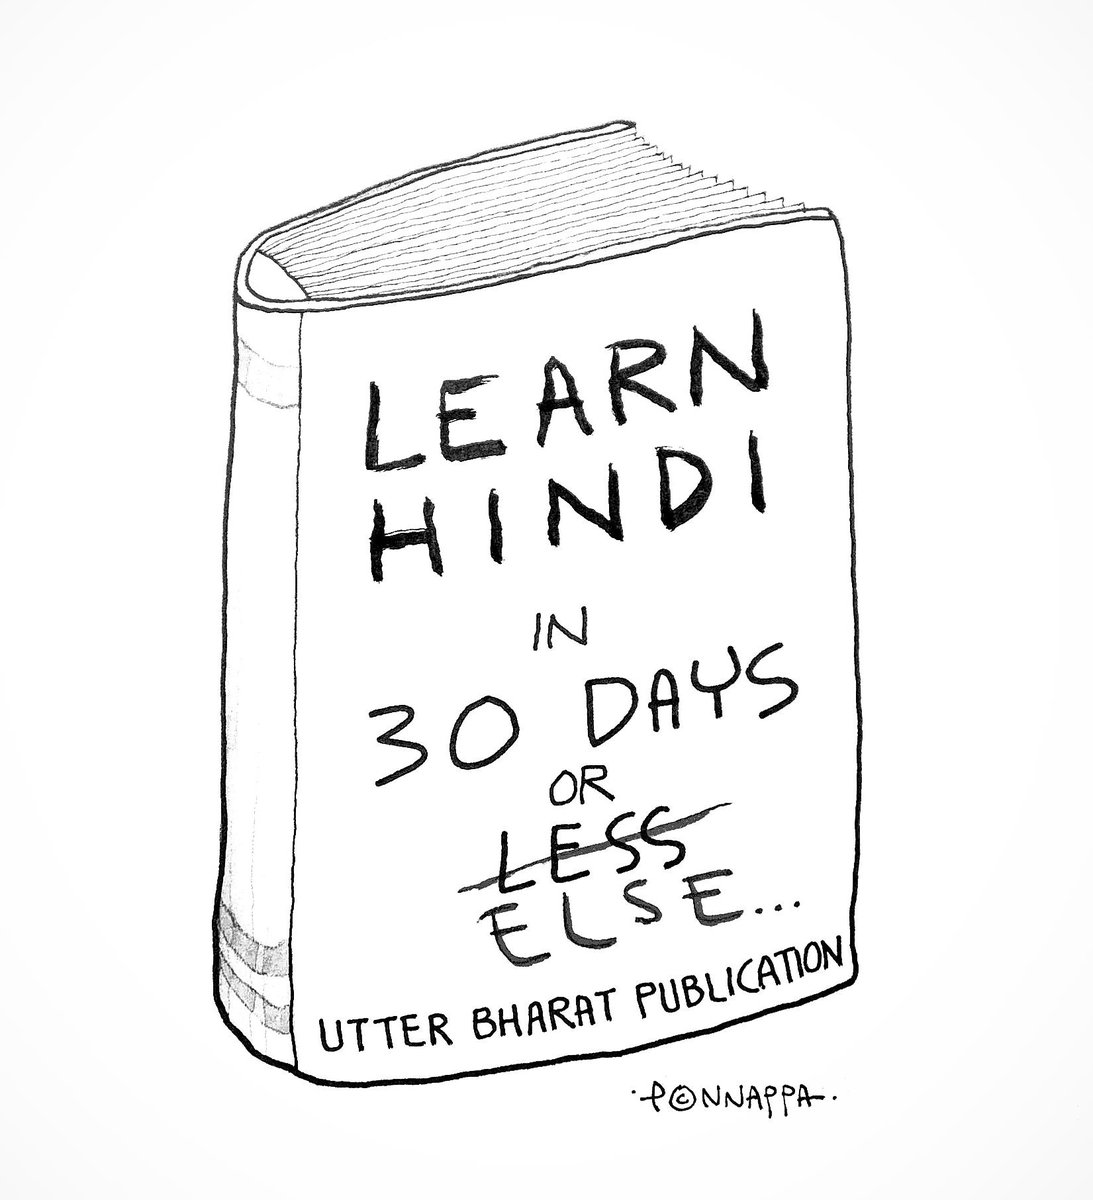 LEARN
HINDI
IN
30 DAYS
OR
LESS
ELSE...
UTTER BHARAT PUBLICATION
PONNAPPA